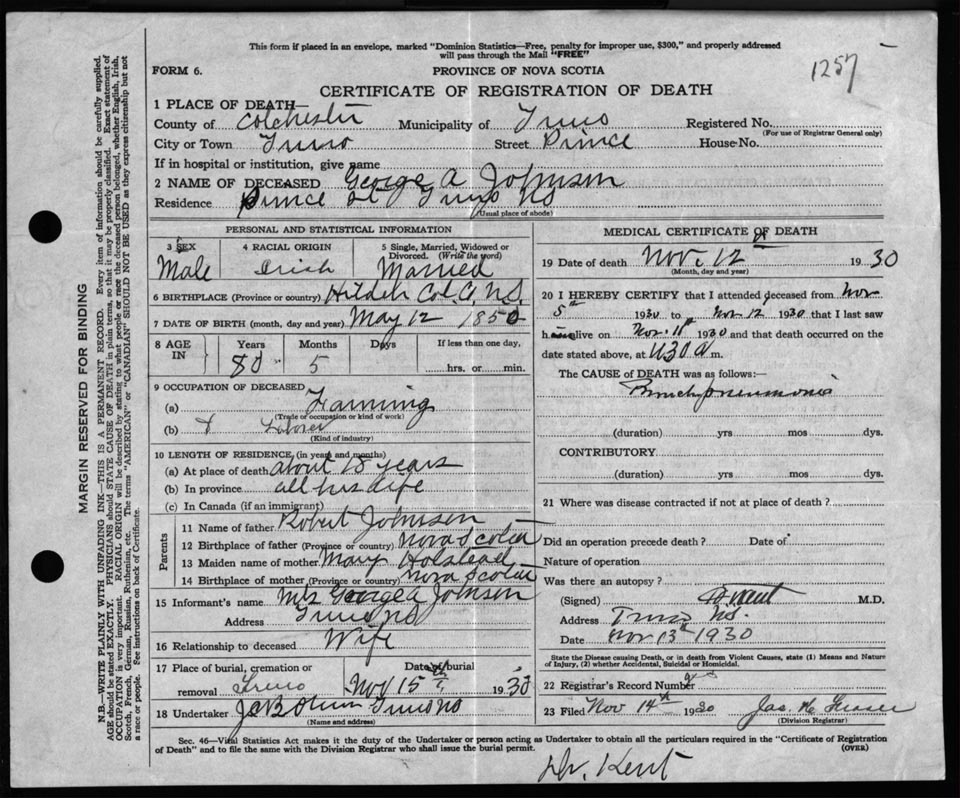 This form if placed in an envelope, marked "Dominion Statistics—Free, penalty for improper use, $300," and properly addressed
will pass through the Mail "FREE"
1257
FORM 6.
PROVINCE OF NOVA SCOTIA
CERTIFICATE OF REGISTRATION OF DEATH
1 PLACE OF DEATH—
County of Colchester Municipality of Truro Registered No.
(For use of Registrar General only)
City or Town Truro Street Prince House No.
If in hospital or institution, give name
2 NAME OF DECEASED George A Johnson
Residence Prince St Truro NS
(Usual place of abode)
PERSONAL AND STATISTICAL INFORMATION
3 SEX
Male
4 RACIAL ORIGIN
Irish
5 Single, Married, Widowed or
Divorced. (Write the word)
Married
6 BIRTHPLACE (Province or country) Hilden Col. Co, N.S.
7 DATE OF BIRTH (month, day and year) May 12 1850
8 AGE
IN
Years
80
Months
5
Days
If less than one day,
hrs. or min.
9 OCCUPATION OF DECEASED
(a) Farming
(Trade or occupation or kind of work)
(b) & Laborer
(Kind of industry)
10 LENGTH OF RESIDENCE (in years and months)
(a) At place of death about 18 years
(b) In province all his life
(c) In Canada (if an immigrant)
Parents
11 Name of father Robert Johnson
12 Birthplace of father (Province or country) Nova Scotia
13 Maiden name of mother Mary Holstead
14 Birthplace of mother (Province or country) Nova Scotia
15 Informant's name Mrs George A Johnson
Address Truro NS
16 Relationship to deceased Wife
17 Place of burial, cremation or
removal Truro
Date of burial
Nov 15th 1930
18 Undertaker Truro NS
(Name and address)
MEDICAL CERTIFICATE OF DEATH
19 Date of death Nov. 12 1930
(Month, day and year)
20 I HEREBY CERTIFY that I attended deceased from Nov
5th 1930 to Nov 12 1930 that I last saw
him alive on Nov. 11th 1930 and that death occurred on the
date stated above, at 430 a m.
The CAUSE of DEATH was as follows:—
Bronchopneumonia
(duration) yrs mos dys.
CONTRIBUTORY
(duration) yrs mos dys.
21 Where was disease contracted if not at place of death?
Did an operation precede death? Date of
Nature of operation
Was there an autopsy?
(Signed) Kent M.D.
Address Truro NS.
Date Nov 13th 1930
State the Disease causing Death, or in death from Violent Causes, state (1) Means and Nature
of Injury, (2) whether Accidental, Suicidal or Homicidal.
22 Registrar's Record Number
23 Filed Nov 14th 1930 Jas. M. Fraser
(Division Registrar)
Sec. 46—Vital Statistics Act makes it the duty of the Undertaker or person acting as Undertaker to obtain all the particulars required in the "Certificate of Registration
of Death" and to file the same with the Division Registrar who shall issue the burial permit.
(OVER)
Dr. Kent
MARGIN RESERVED FOR BINDING
N.B.—WRITE PLAINLY WITH UNFADING INK—THIS IS A PERMANENT RECORD. Every item of information should be carefully supplied.
AGE should be stated EXACTLY. PHYSICIANS should STATE CAUSE OF DEATH in plain terms, so that it may be properly classified. Exact statement of
OCCUPATION is very important. RACIAL ORIGIN will be described by stating to what people or race the deceased person belonged, whether English, Irish,
Scotch, French, German, Russian, Ruthenian, etc. The terms "AMERICAN" or "CANADIAN" SHOULD NOT BE USED as they express citizenship but not
a race or people. See instructions on back of Certificate.